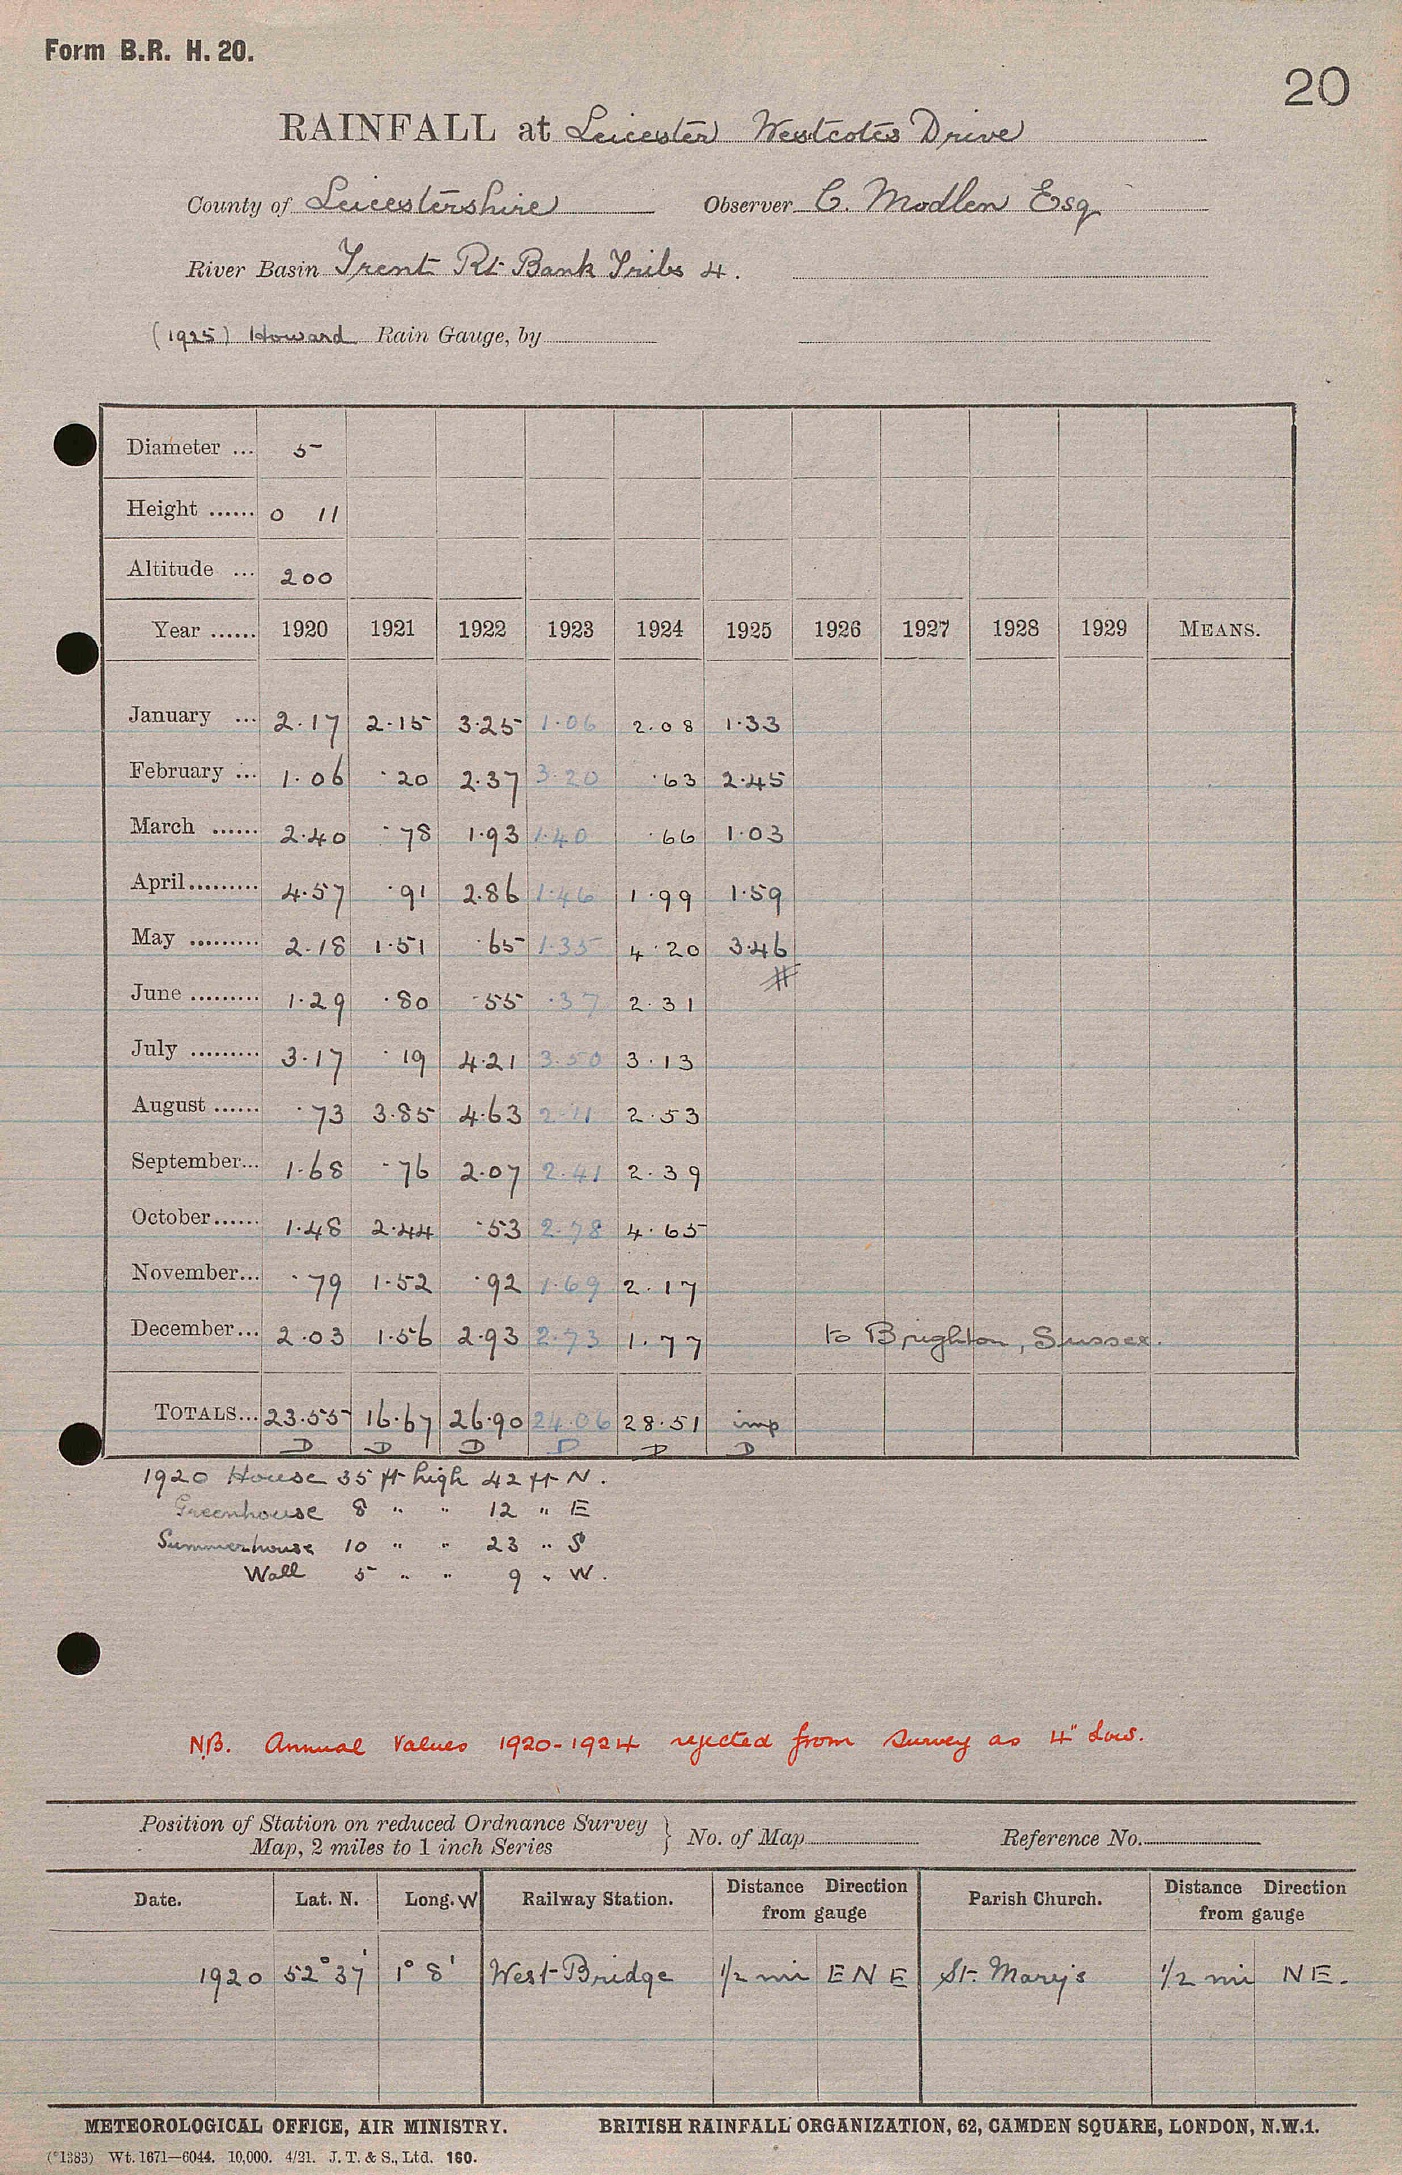 Form B.R. H. 20.
20
RAINFALL at Leicester Westcotes Drive
County of Leicestershire Observer C. Modlen Esq
River Basin Trent Rt Bank Tribs 4.
(1925) Howard Rain Gauge, by
Diameter ... 5
Height ...... 0 11
Altitude ... 200
Year ...... 1920 1921 1922 1923 1924 1925 1926 1927 1928 1929 MEANS.
January ... 2.17 2.15 3.25 1.06 2.08 1.33
February ... 1.06 .20 2.37 3.20 .63 2.45
March ...... 2.40 .78 1.93 1.40 .66 1.03
April ......... 4.57 .91 2.86 1.46 1.99 1.59
May ......... 2.18 1.51 .65 1.35 4.20 3.46
June ......... 1.29 .80 .55 .37 2.31
July ......... 3.17 .19 4.21 3.50 3.13
August ...... .73 3.85 4.63 2.11 2.53
September... 1.68 .76 2.07 2.41 2.39
October...... 1.48 2.44 .53 2.78 4.65
November... .79 1.52 .92 1.69 2.17
December... 2.03 1.56 2.93 2.73 1.77 to Brighton, Sussex.
TOTALS... 23.55 16.67 26.90 24.06 28.51 imp
D D D D D D
1920 House 35 ft high 42 ft N.
Greenhouse 8 " " 12 " E
Summerhouse 10 " " 23 " S
Wall 5 " " 9 " W.
N.B. Annual Values 1920-1924 rejected from survey as 4" low.
Position of Station on reduced Ordnance Survey
Map, 2 miles to 1 inch Series } No. of Map Reference No.
Date. Lat. N. Long. W Railway Station. Distance Direction from gauge Parish Church. Distance Direction from gauge
1920 52° 37' 1° 8' West Bridge 1/2 mi E N E St. Mary's 1/2 mi N E.
METEOROLOGICAL OFFICE, AIR MINISTRY. BRITISH RAINFALL ORGANIZATION, 62, CAMDEN SQUARE, LONDON, N.W.1.
(*1383) Wt. 1671—6044. 10,000. 4/21. J. T. & S., Ltd. 160.